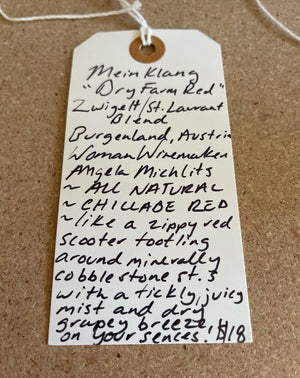 Mein Klang
"Dry Farm Red"
Zwigelt/St. Laurant
Blend
Burgenland, Austria
Woman Winemaker
Angela Michlits
~ ALL NATURAL
~ CHILLABE RED
~ like a zippy red
scooter tootling
around minerally
cobblestone st.s
with a tickly, juicy
mist and dry
grapey breeze,
on your sences! $18